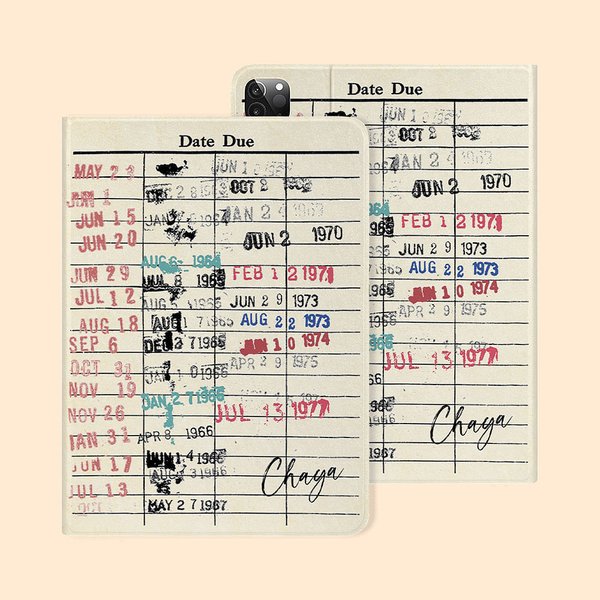 Date Due
MAY 2 3
JUN 1
JUN 15
JUN 20
JUN 29
JUL 12
AUG 18
SEP 6
OCT 31
NOV 19
NOV 26
JAN 31
JUN 17
JUL 13
OCT
1964
AUG 6 1964
JUL 8 1965
AUG 5 1965
AUG 1 7 1965
DEC 2 7 1965
JAN 1 0 1966
JAN 2 7 1966
APR 8 1966
JUN 1 4 1966
AUG 3 1 1966
MAY 2 7 1967
JUN 1
OCT 2
JAN 2 4 1969
JUN 2 1970
FEB 1 2 1971
JUN 2 9 1973
AUG 2 2 1973
JUN 1 0 1974
APR 2 9 1975
JUL 13 1977
Chaya
Date Due
JUN 1
OCT 2
JAN 2 4 1969
JUN 2 1970
FEB 1 2 1971
JUN 2 9 1973
AUG 2 2 1973
JUN 1 0 1974
APR 2 9 1975
JUL 13 1977
Chaya